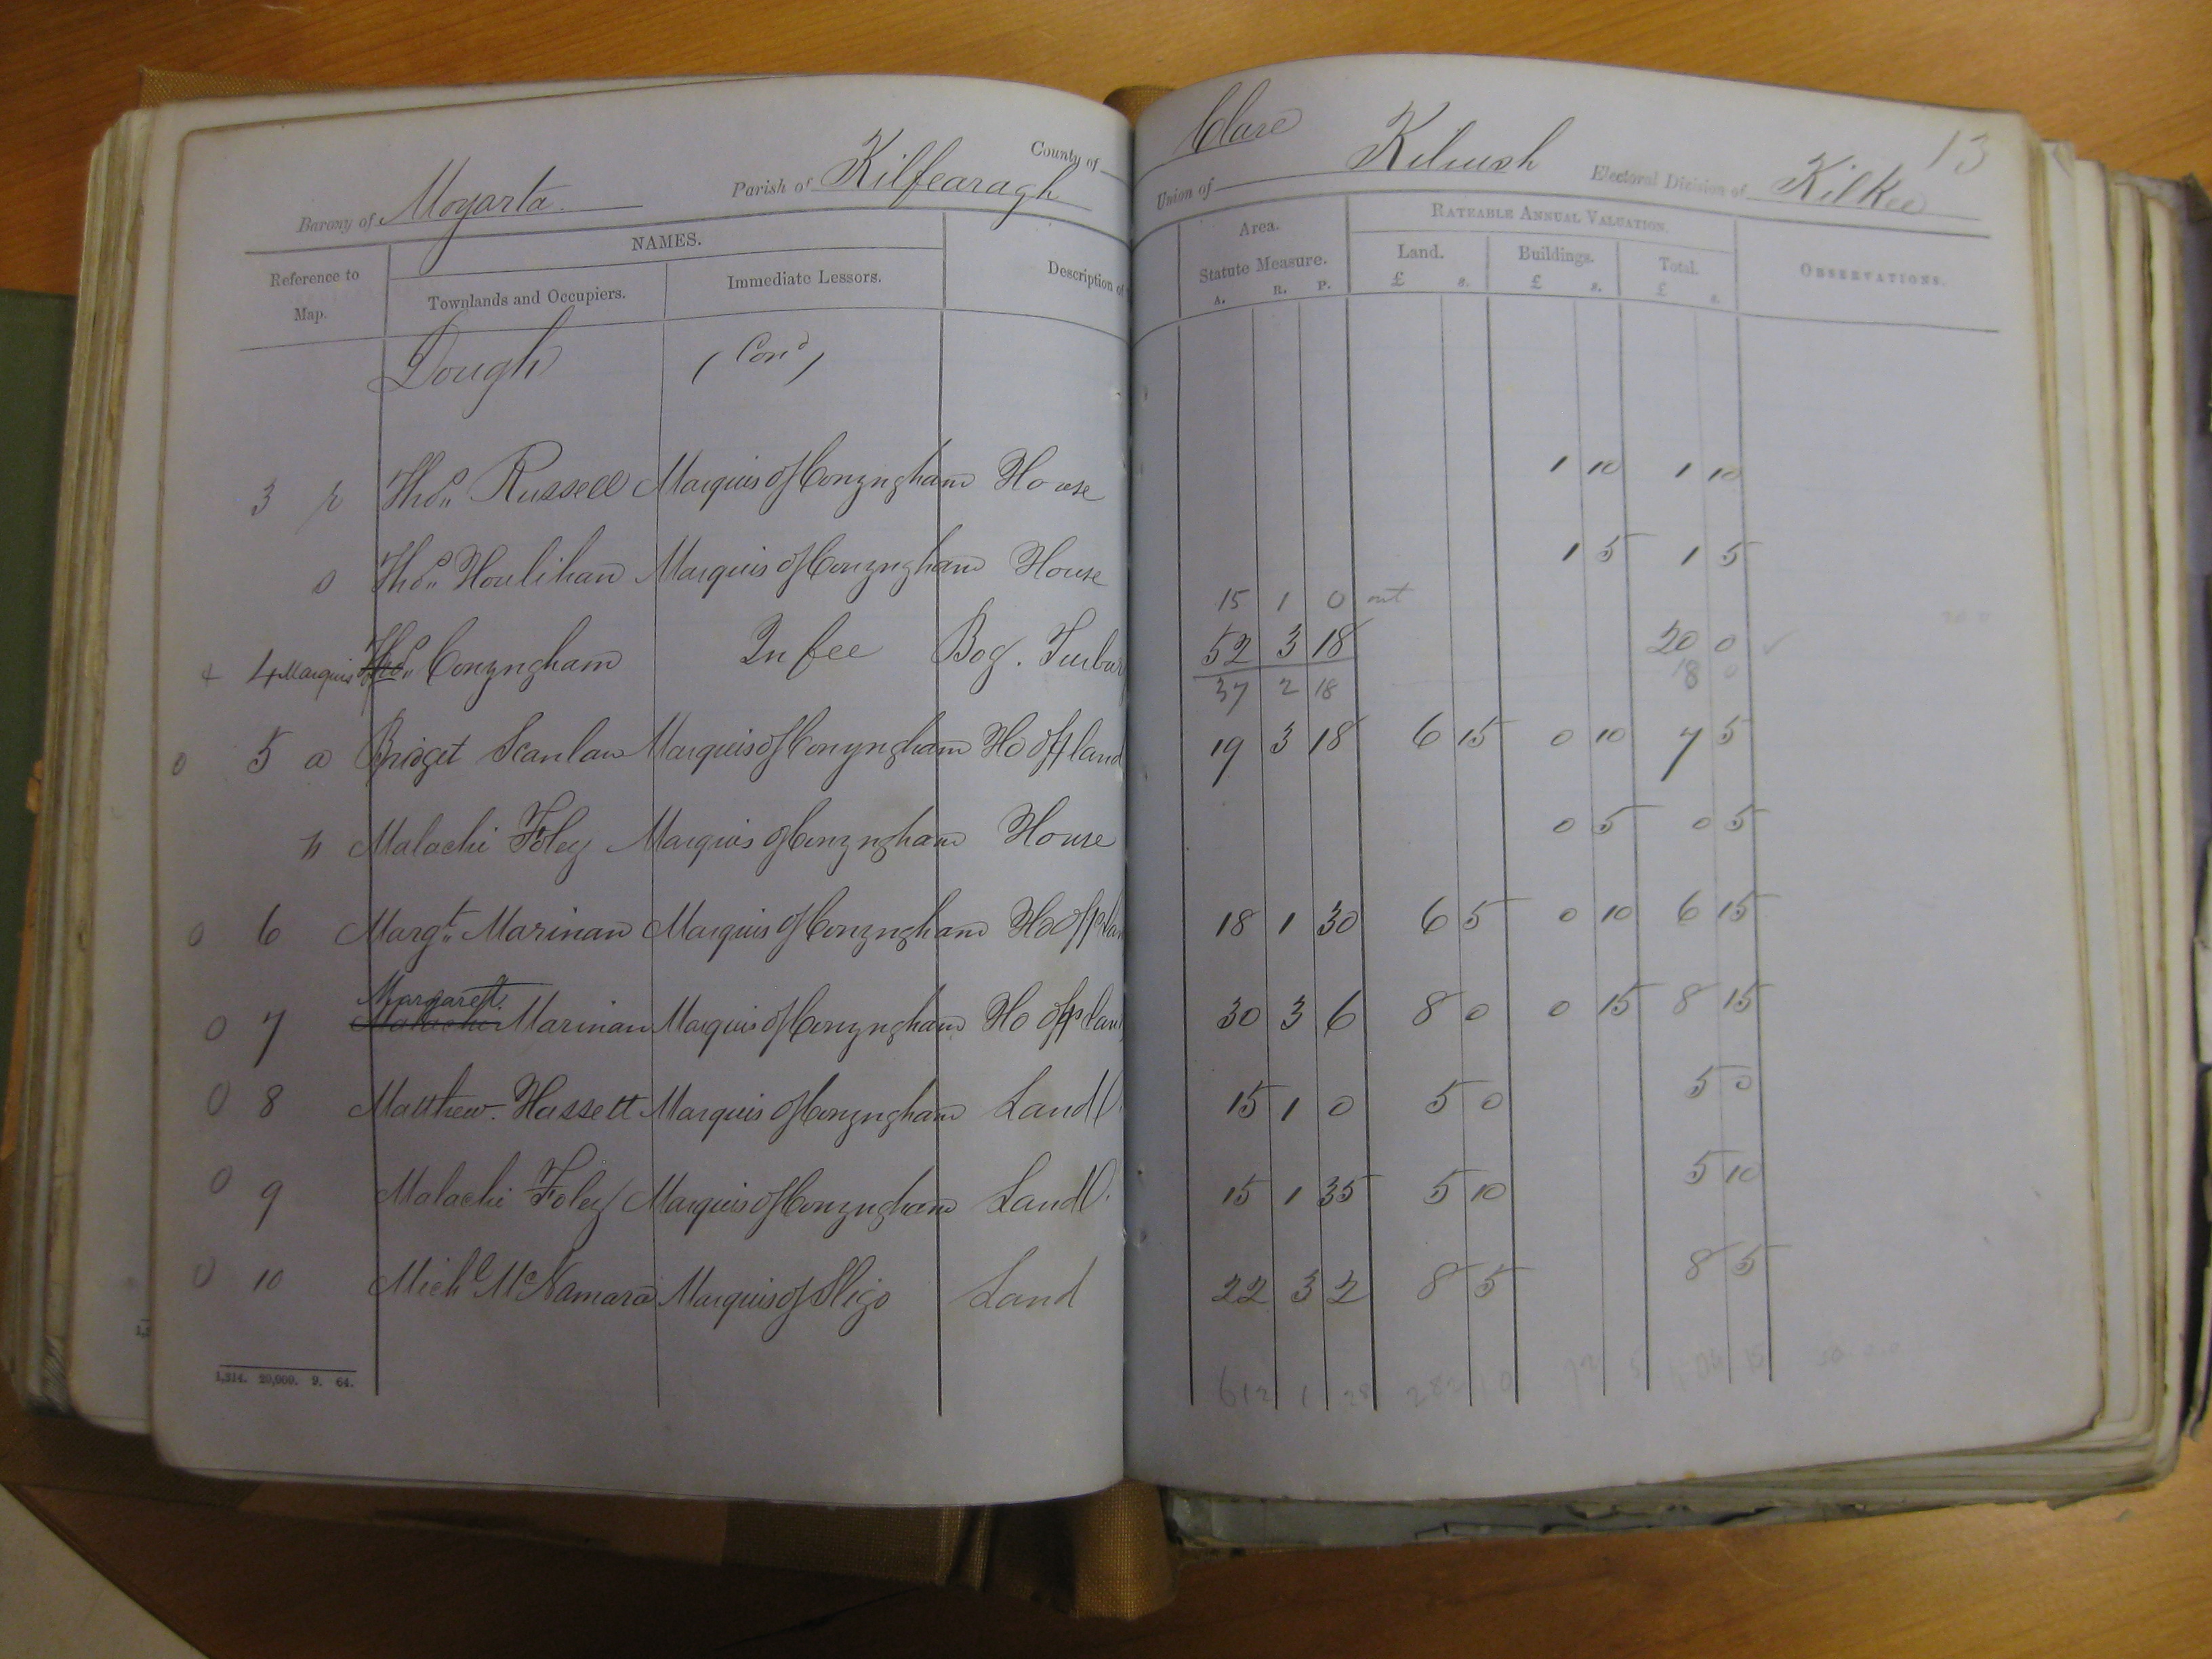 County of Clare 13
Barony of Moyarta Parish of Kilfearagh Union of Kilrush Electoral Division of Kilkee
NAMES. Area. RATEABLE ANNUAL VALUATION.
Reference to Map. Townlands and Occupiers. Immediate Lessors. Description of Statute Measure. Land. Buildings. Total. OBSERVATIONS.
A. R. P. £ s. £ s. £ s.
Dough (Con^d)
3 r Tho^s Russell Marquis of Conyngham House 1 10 1 10
s Tho^s Houlihan Marquis of Conyngham House 1 5 1 5
15 1 0 out
+ 4 Marquis Tho^s Conyngham In fee Bog. Turbary 52 3 18 20 0
37 2 18 18 0
0 5 a Bridget Scanlan Marquis of Conyngham Ho Off land 19 3 18 6 15 0 10 7 5
b Malachi Foley Marquis of Conyngham House 0 5 0 5
0 6 Marg^t Marinan Marquis of Conyngham Ho Offs lan 18 1 30 6 5 0 10 6 15
Margaret
0 7 Malachi Marinan Marquis of Conyngham Ho Offs lan 30 3 6 8 0 0 15 8 15
0 8 Matthew Hassett Marquis of Conyngham Land 15 1 0 5 0 5 0
0 9 Malachi Foley Marquis of Conyngham Land 15 1 35 5 10 5 10
0 10 Mich^l McNamara Marquis of Sligo Land 22 3 2 8 5 8 5
612 1 28
1,314. 20,000. 9. 64.